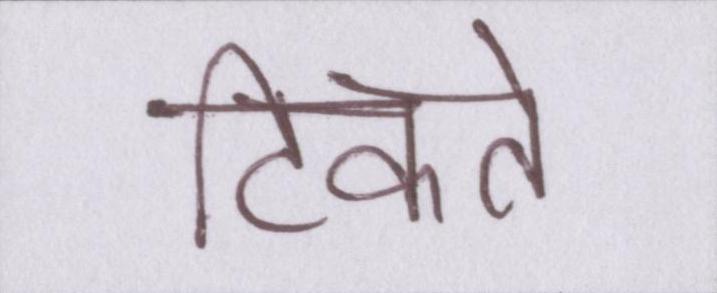 टिकते